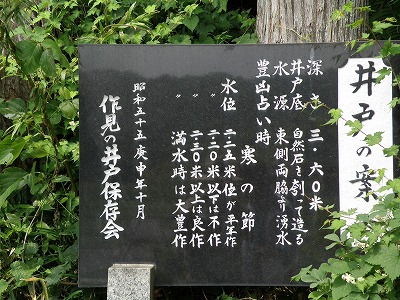 井戸の案
深さ 三・六〇米
井戸底 自然石を刳って造る
水源 東側両脇より湧水
豊凶占い時 寒の節
水位 二二五米位が平年作
〃 二三〇米以下は不作
〃 二三〇米以上は良作
満水時は大豊作
昭和五十五庚申年十月
作見の井戸保存会